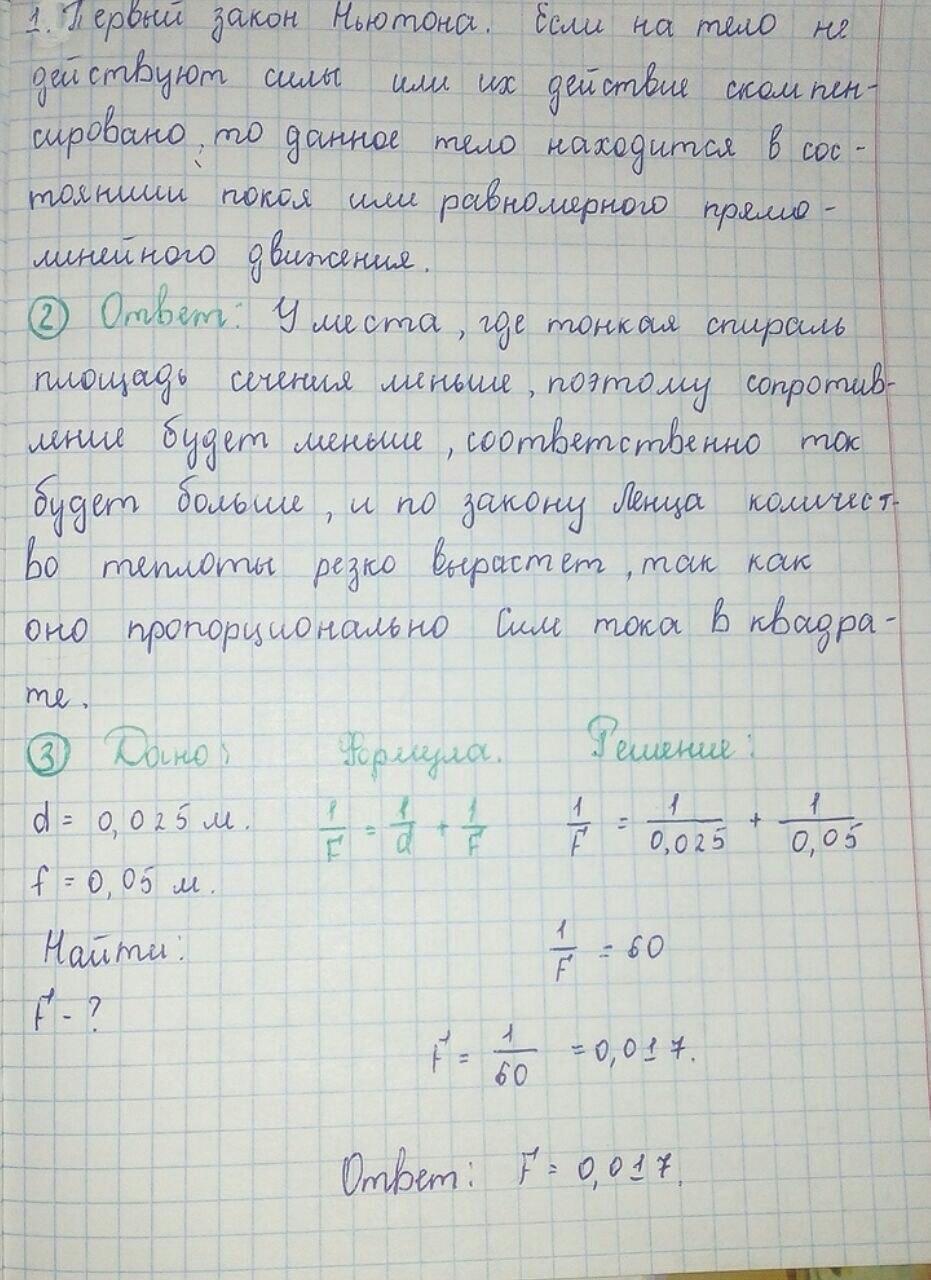 1. Первый закон Ньютона. Если на тело не
действуют силы или их действие скомпен-
сировано, то данное тело находится в сос-
тоянии покоя или равномерного прямо-
линейного движения.
② Ответ: У места, где тонкая спираль
площадь сечения меньше, поэтому сопротив-
ление будет меньше, соответственно ток
будет больше, и по закону Ленца количест-
во теплоты резко вырастет, так как
оно пропорционально Силе тока в квадра-
те.
③ Дано: Формула. Решение:
d = 0,025 м. 1/F = 1/d + 1/F 1/F = 1/0,025 + 1/0,05
f = 0,05 м.
Найти: 1/F = 60
F - ?
F = 1/60 = 0,017.
Ответ: F = 0,017.